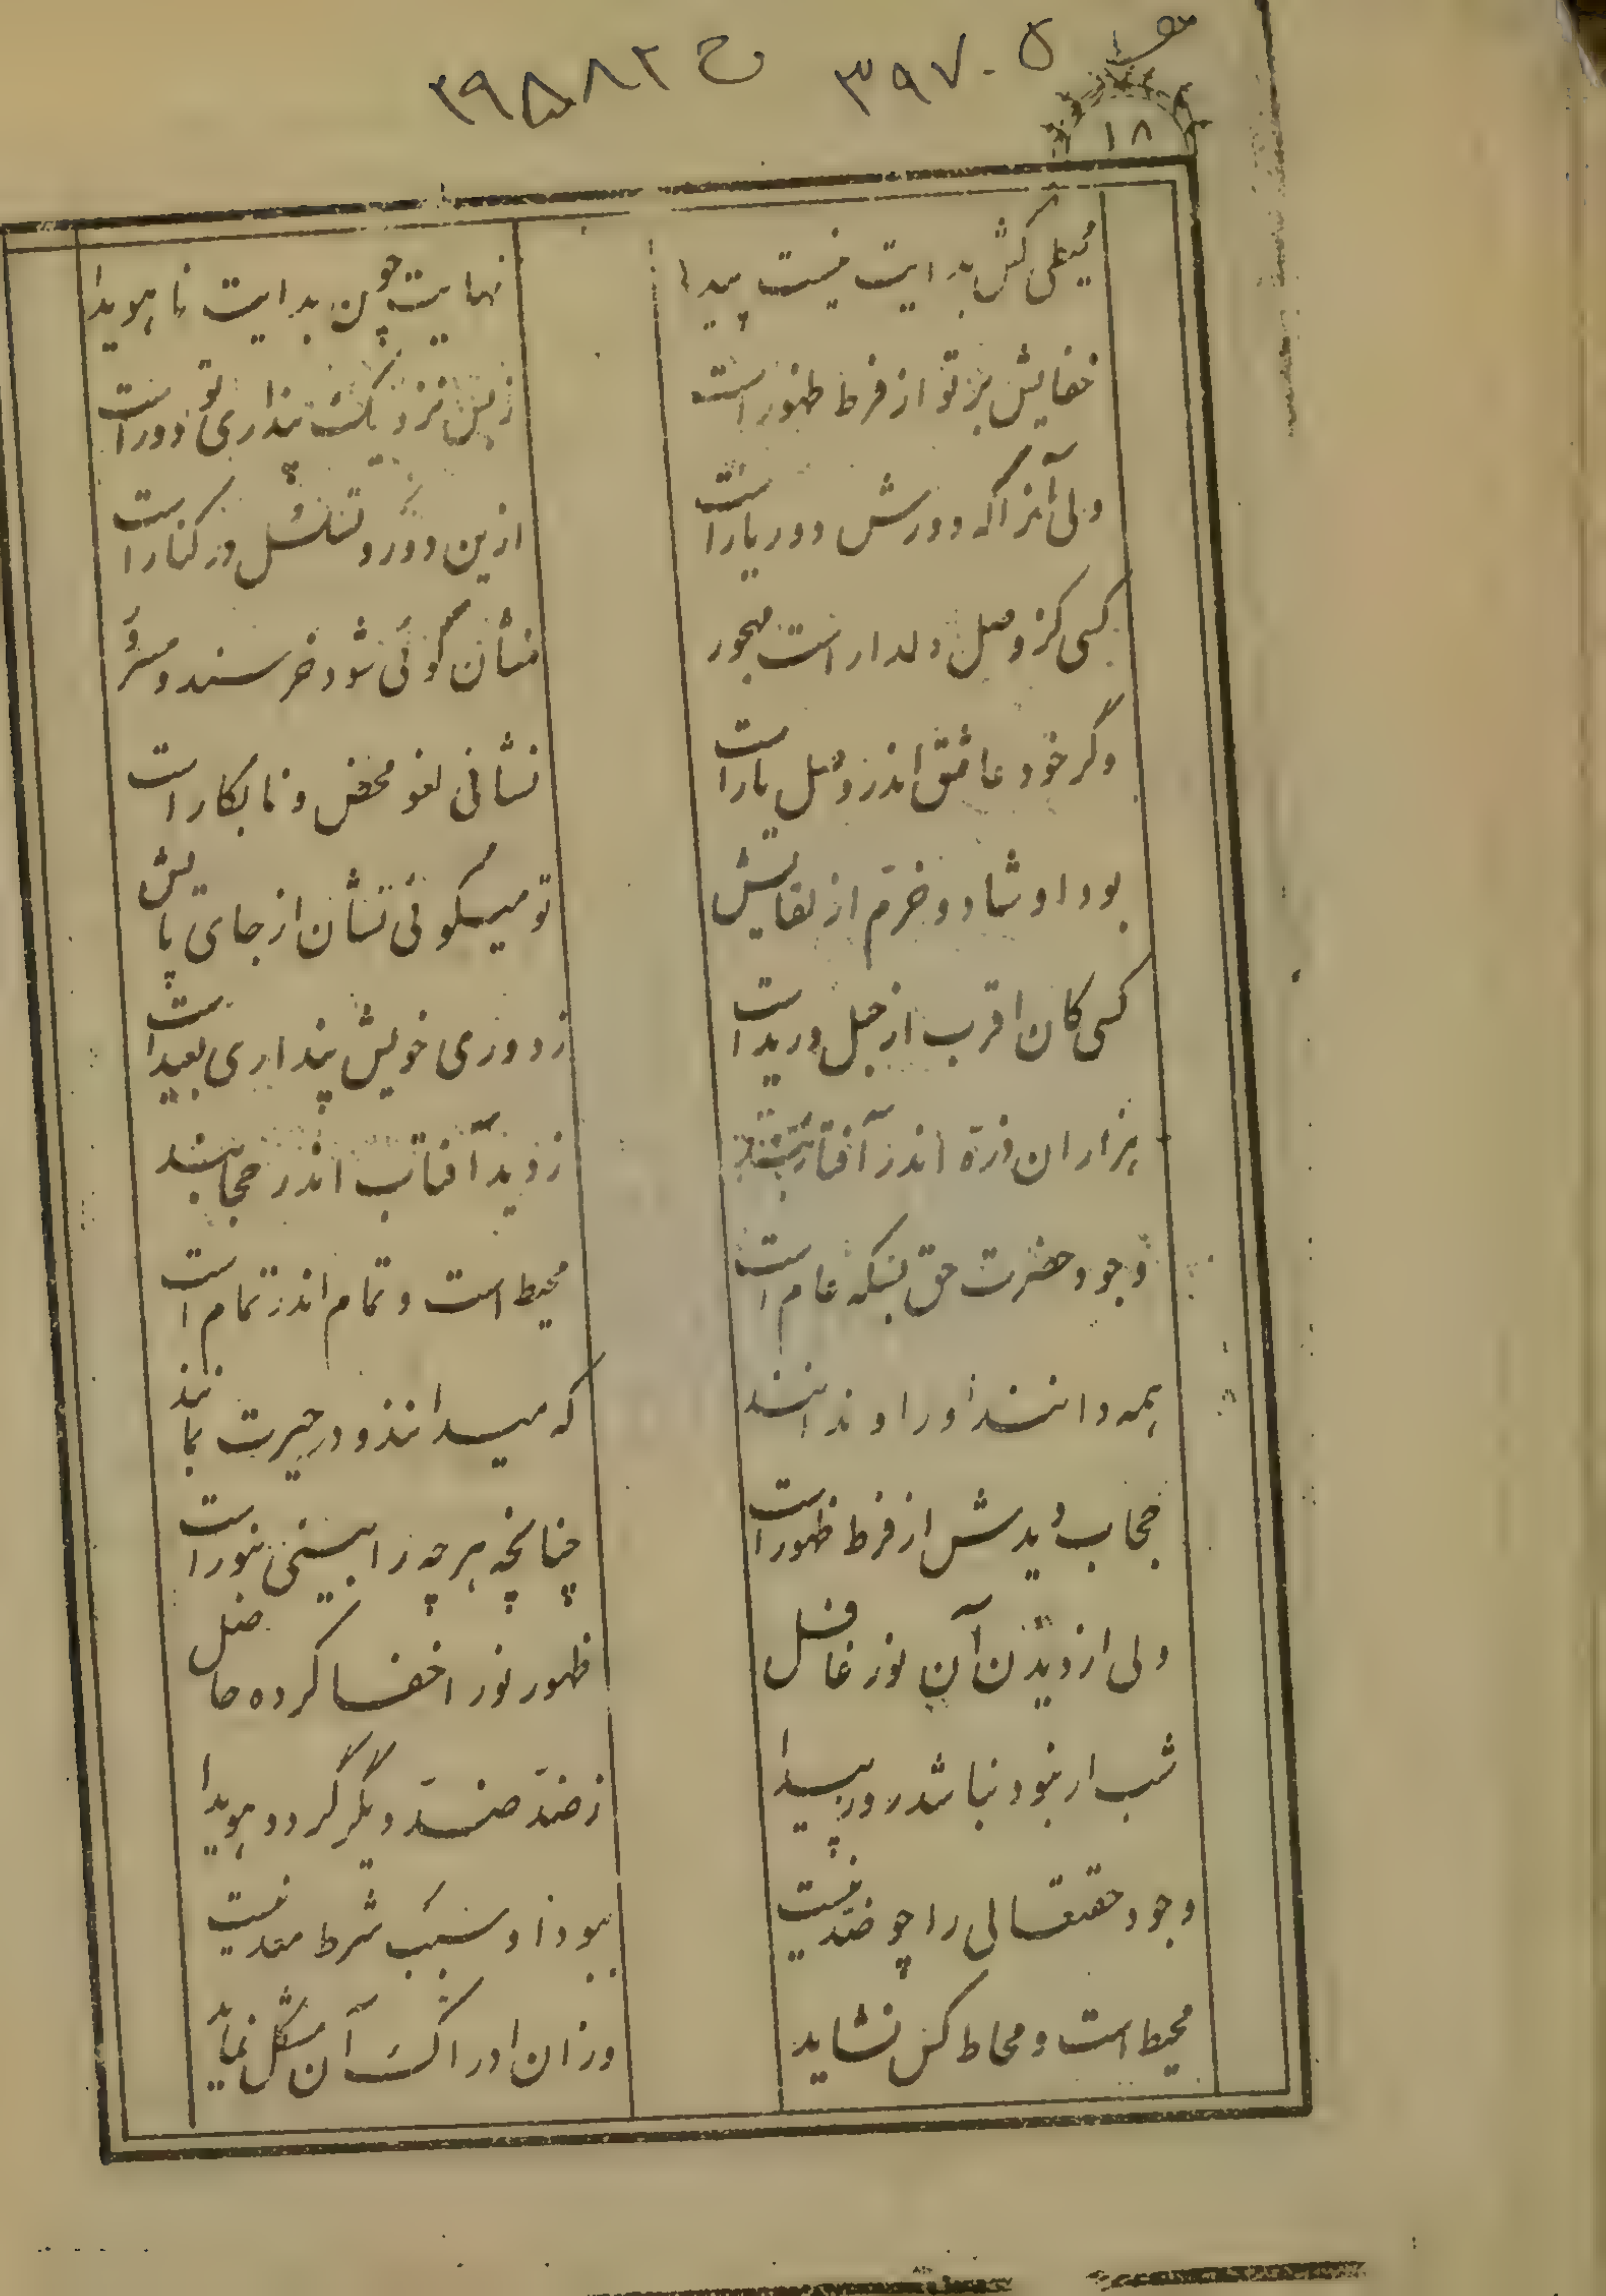 ۳۹۷۰۵ ح ۳۹۵۸۸۲
۱۸
محیطی کش بدایت نیست پیدا نهایت چون بدایت ناهویدا
خفایش بر تو از فرط ظهور است ز بس نزدیک پنداری تو دور است
ولی آنرا که دورش دور یار است ازین دور و تسلسل در کنار است
کسی کز وصل دلدار است مهجور نشان گوئی شود خرسند و مسرور
وگر خود عاشق اندر وصل یار است نشانی لغو محض و نابکار است
بود او شاد و خرم از لقایش تو میگوئی نشان از جای پایش
کسی کان اقرب از حبل ورید است ز دوری خویش پنداری بعید است
هزاران ذره اندر آفتابند ز دید آفتاب اندر حجابند
وجود حضرت حق بسکه عام است محیط است و تمام اندر تمام است
همه دانند او را و ندانند که میدانند و در حیرت بمانند
حجاب دیدش از فرط ظهور است چنانچه هر چه را بینی بنور است
ولی از دیدن آن نور غافل ظهور نور اخفا کرده حاصل
شب ار نبود نباشد روز پیدا ز ضد ضد دیگر گردد هویدا
وجود حقتعالی را چو ضد نیست بود زاو سبب شرط معد نیست
محیط است و محاط کس نشاید وز ان ادراک آن مشکل نماید